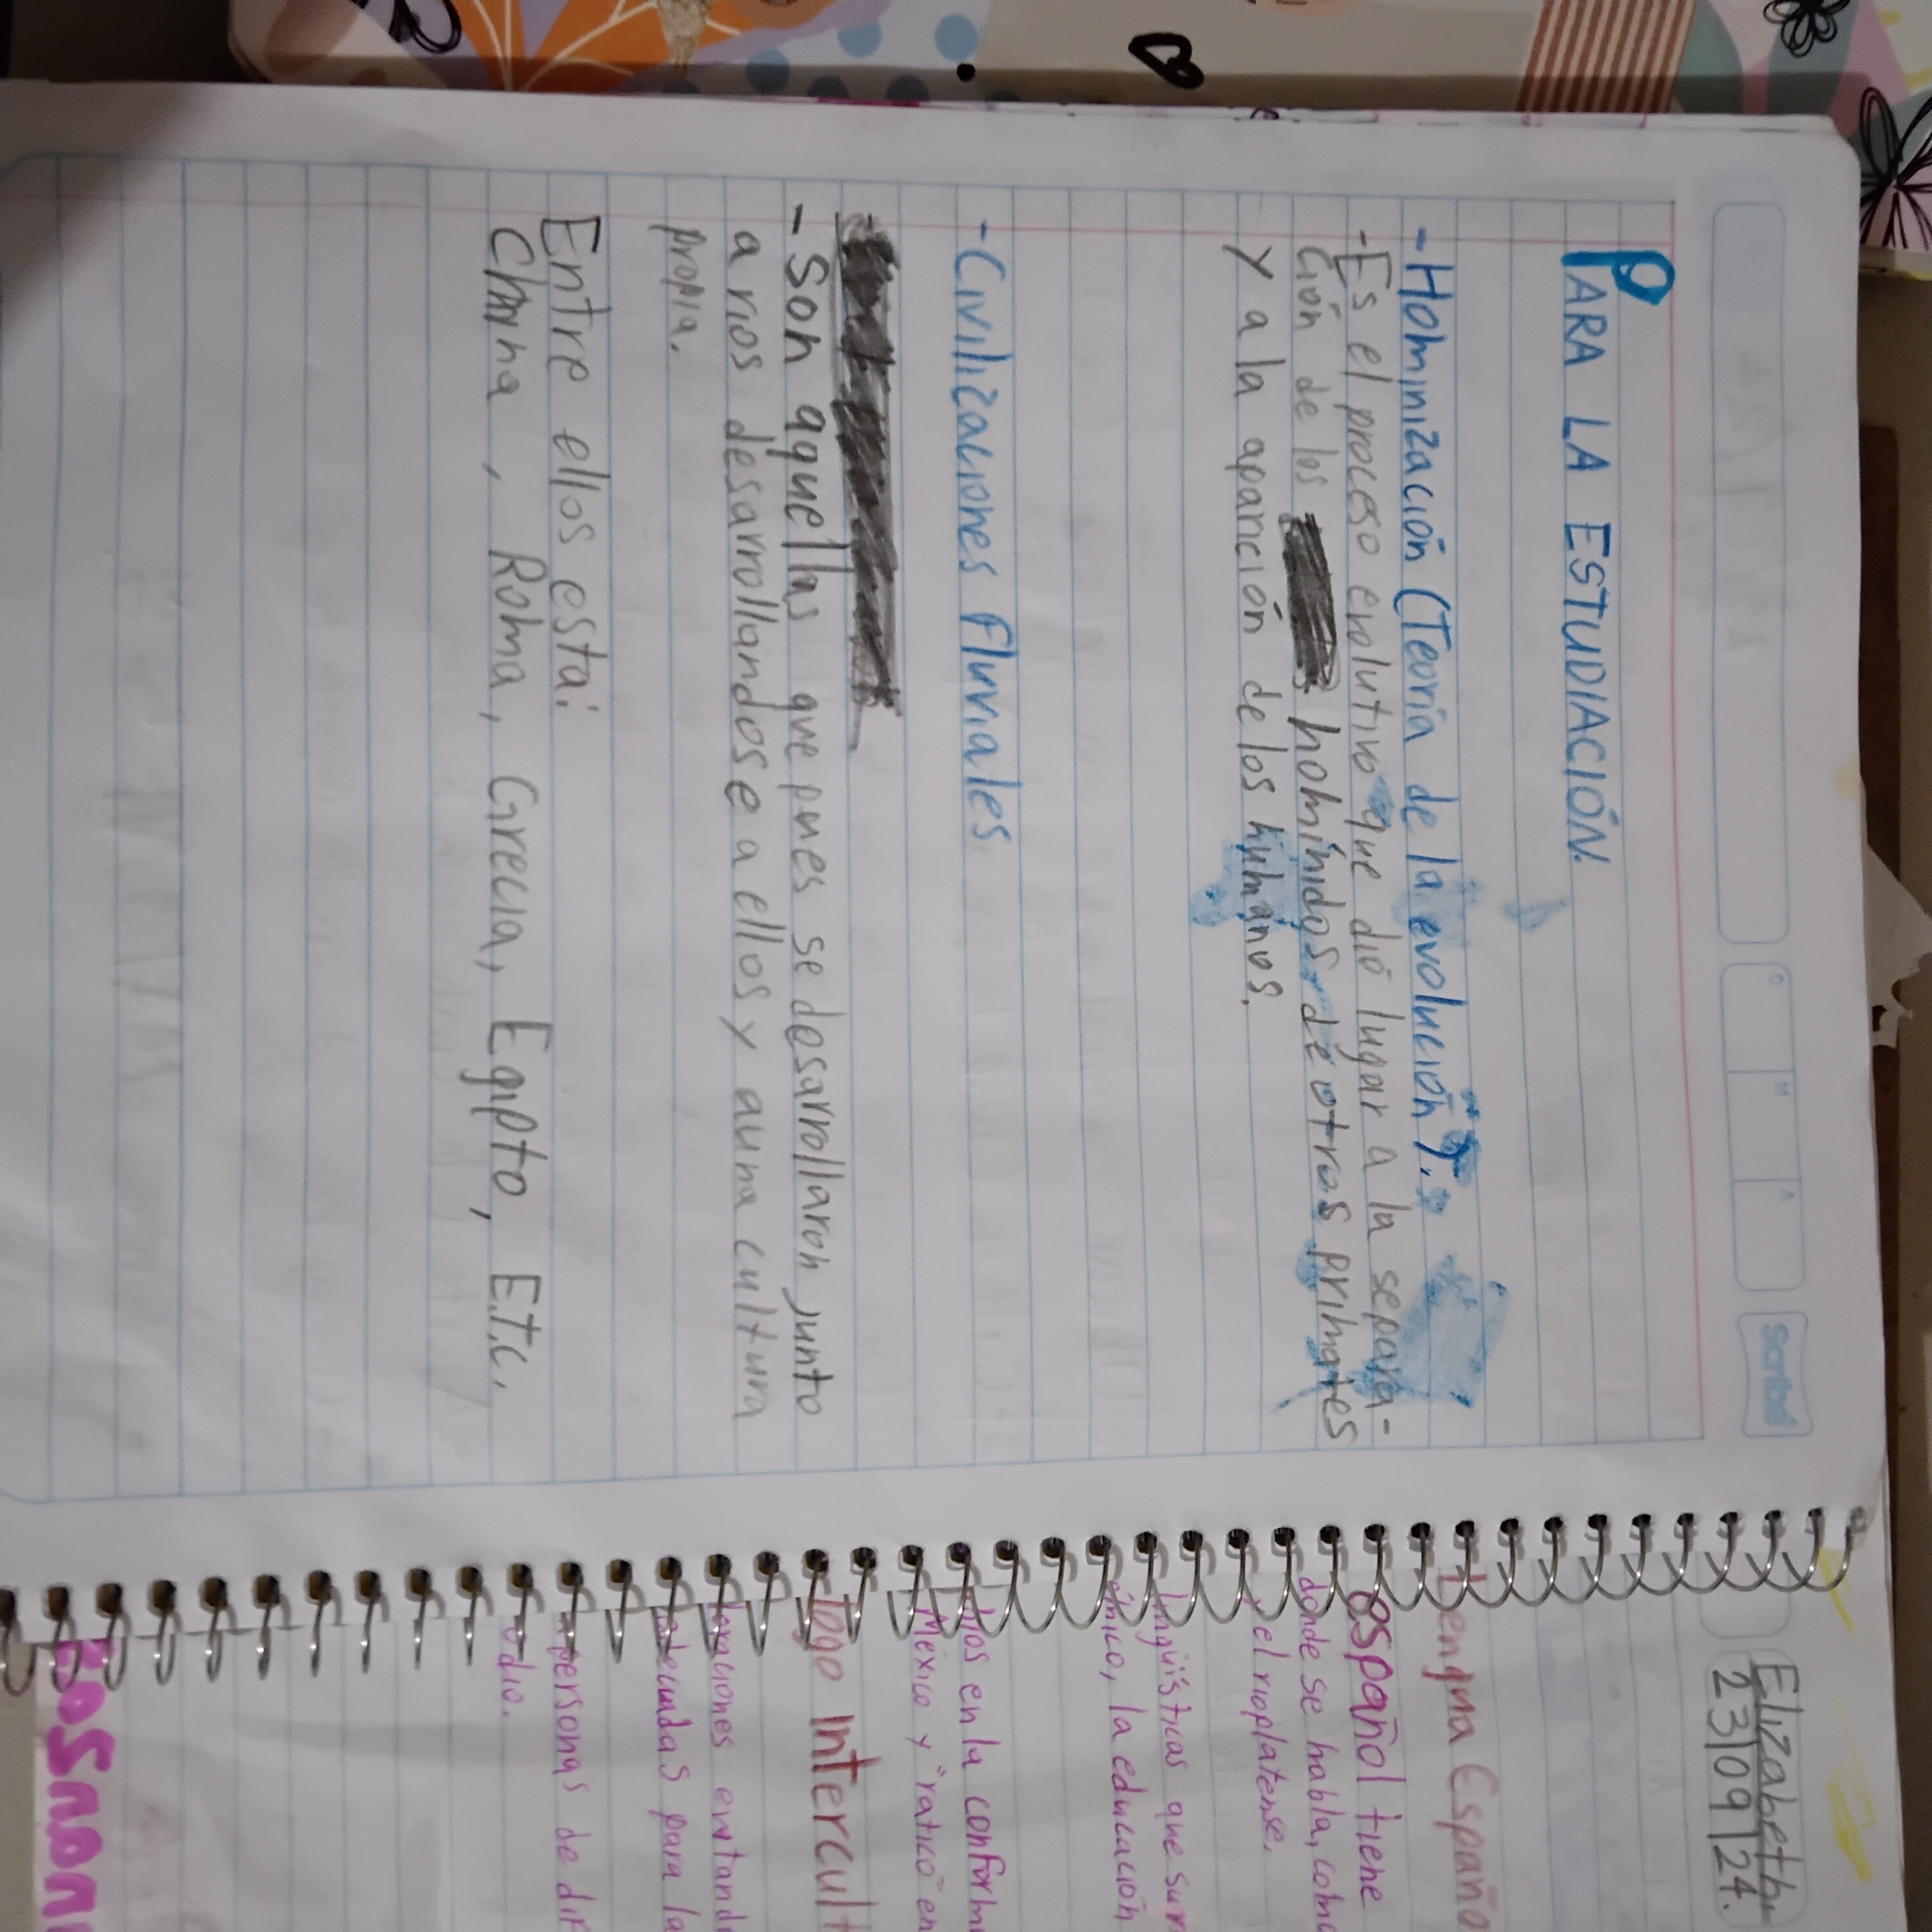 PARA LA ESTUDIACIÓN.
- Hominización (Teoría de la evolución).
- Es el proceso evolutivo que dió lugar a la separa-
ción de los homínidos de otros primates
y a la aparición de los humanos.
- Civilizaciones fluviales.
- Son aquellas que pues se desarrollaron junto
a rios desarrollandose a ellos y a una cultura
propia.
Entre ellos esta:
China, Roma, Grecia, Egipto, E.t.c.
D M A
Scribe
Elizabeth
23/09/24.
Lengua Españo
español tiene
donde se habla, como
y el rioplatense.
lingüísticas que sur
único, la educación
en la conform
México y "ratico" en
logo Intercult
evitand
adecuadas para la
personas de dif
odio.